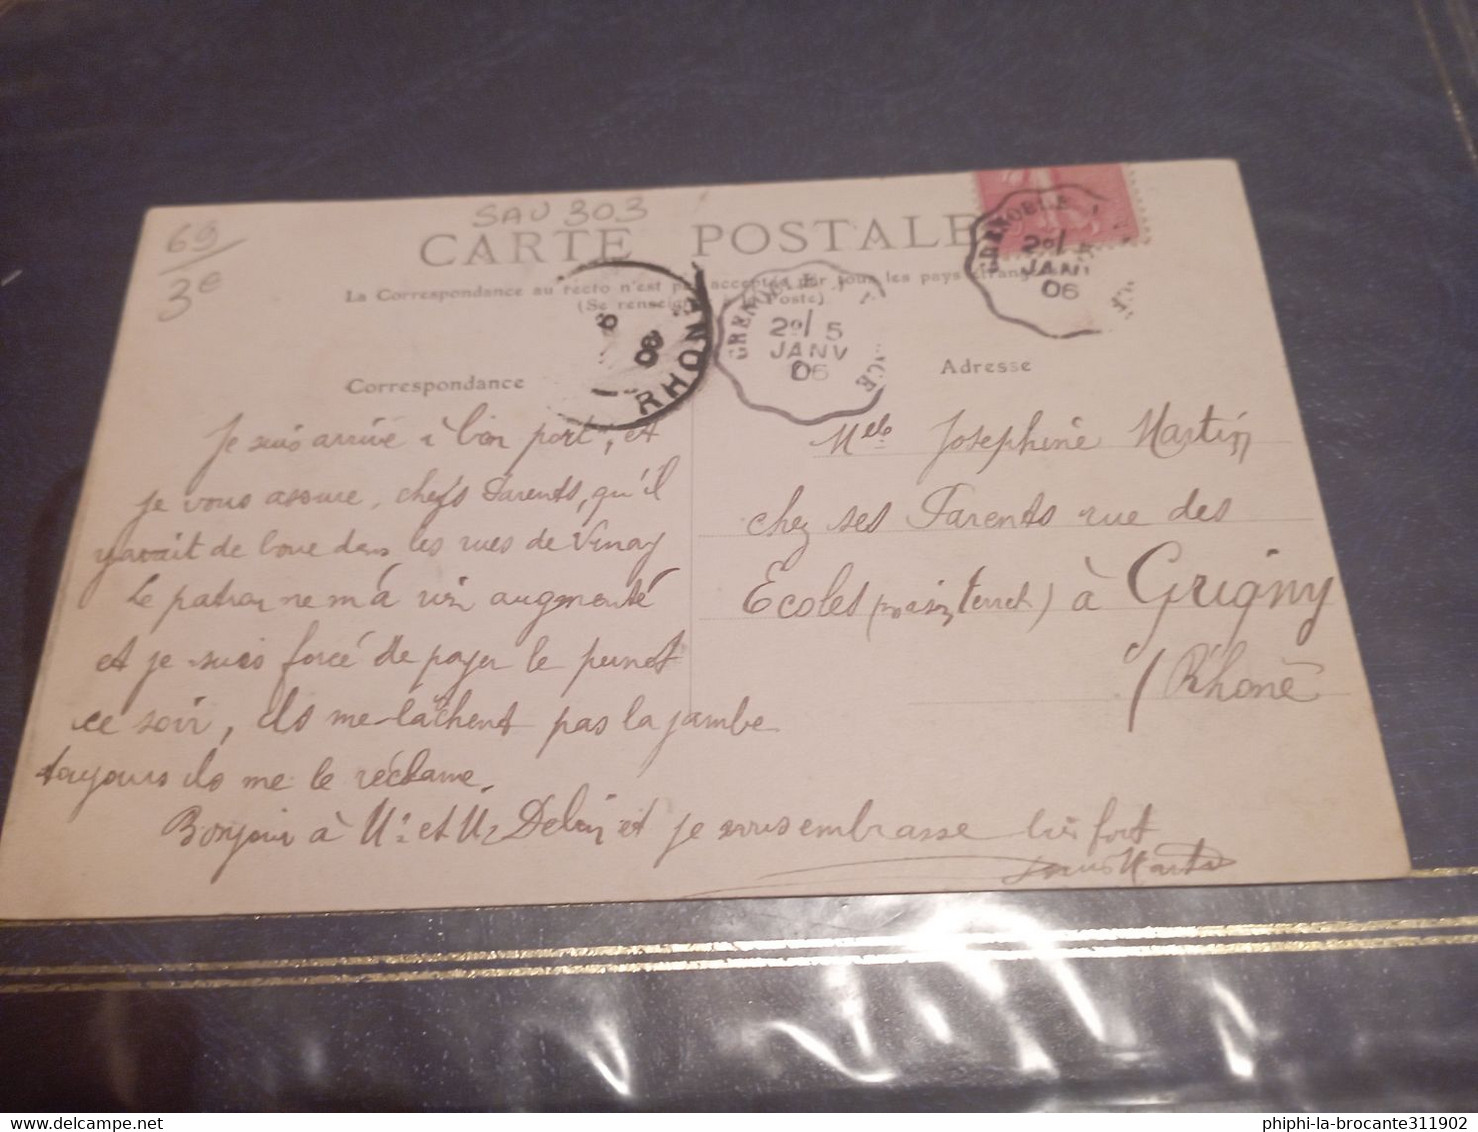 SAU 303
69
3e
CARTE POSTALE
La Correspondance au recto n'est pas acceptée par tous les pays étrangers
(Se renseigner à la Poste)
6
06
RHONE
GRENOBLE
2e/ 5
JANV
06
GRENOBLE
2e/
JANV
06
Correspondance
Adresse
Je suis arrivé à bon port, et
je vous assure, chers Parents, qu'il
y avait de boue dans les rues de Vinay
Le patron ne m'a rien augmenté
et je suis forcé de payer le
ce soir, ils me lâchent pas la jambe
toujours ils me le réclame.
Bonjour à Mr et Me et je vous embrasse très fort
Louis Martin
Melle Josephine Martin
chez ses Parents rue des
Ecoles (maison Terret) à Grigny
Rhône
phiphi-la-brocante311902